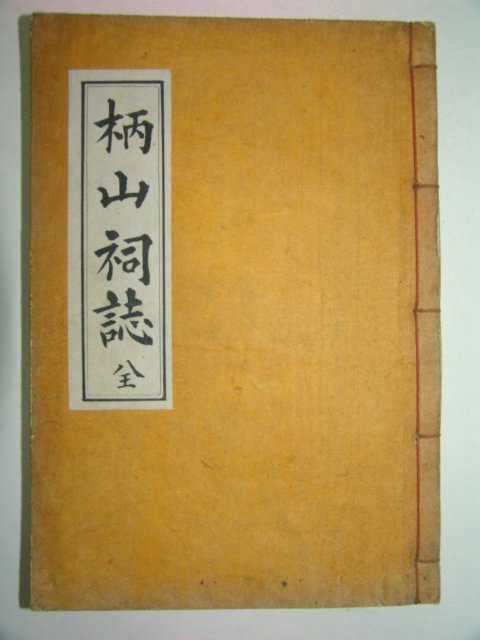 柄山祠誌全